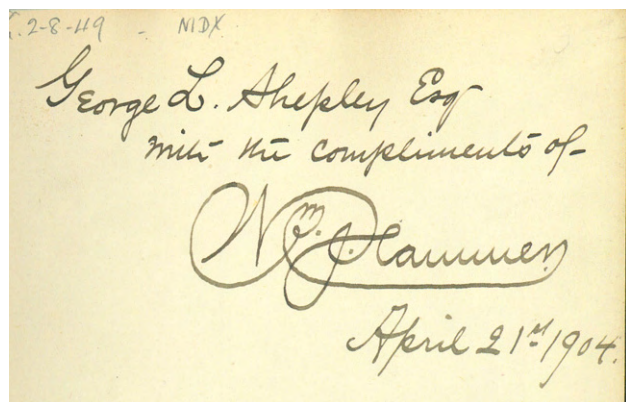 2-8-49 - NIDX
George L. Shepley Esq
with the compliments of
Wm. P.
April 21st 1904.